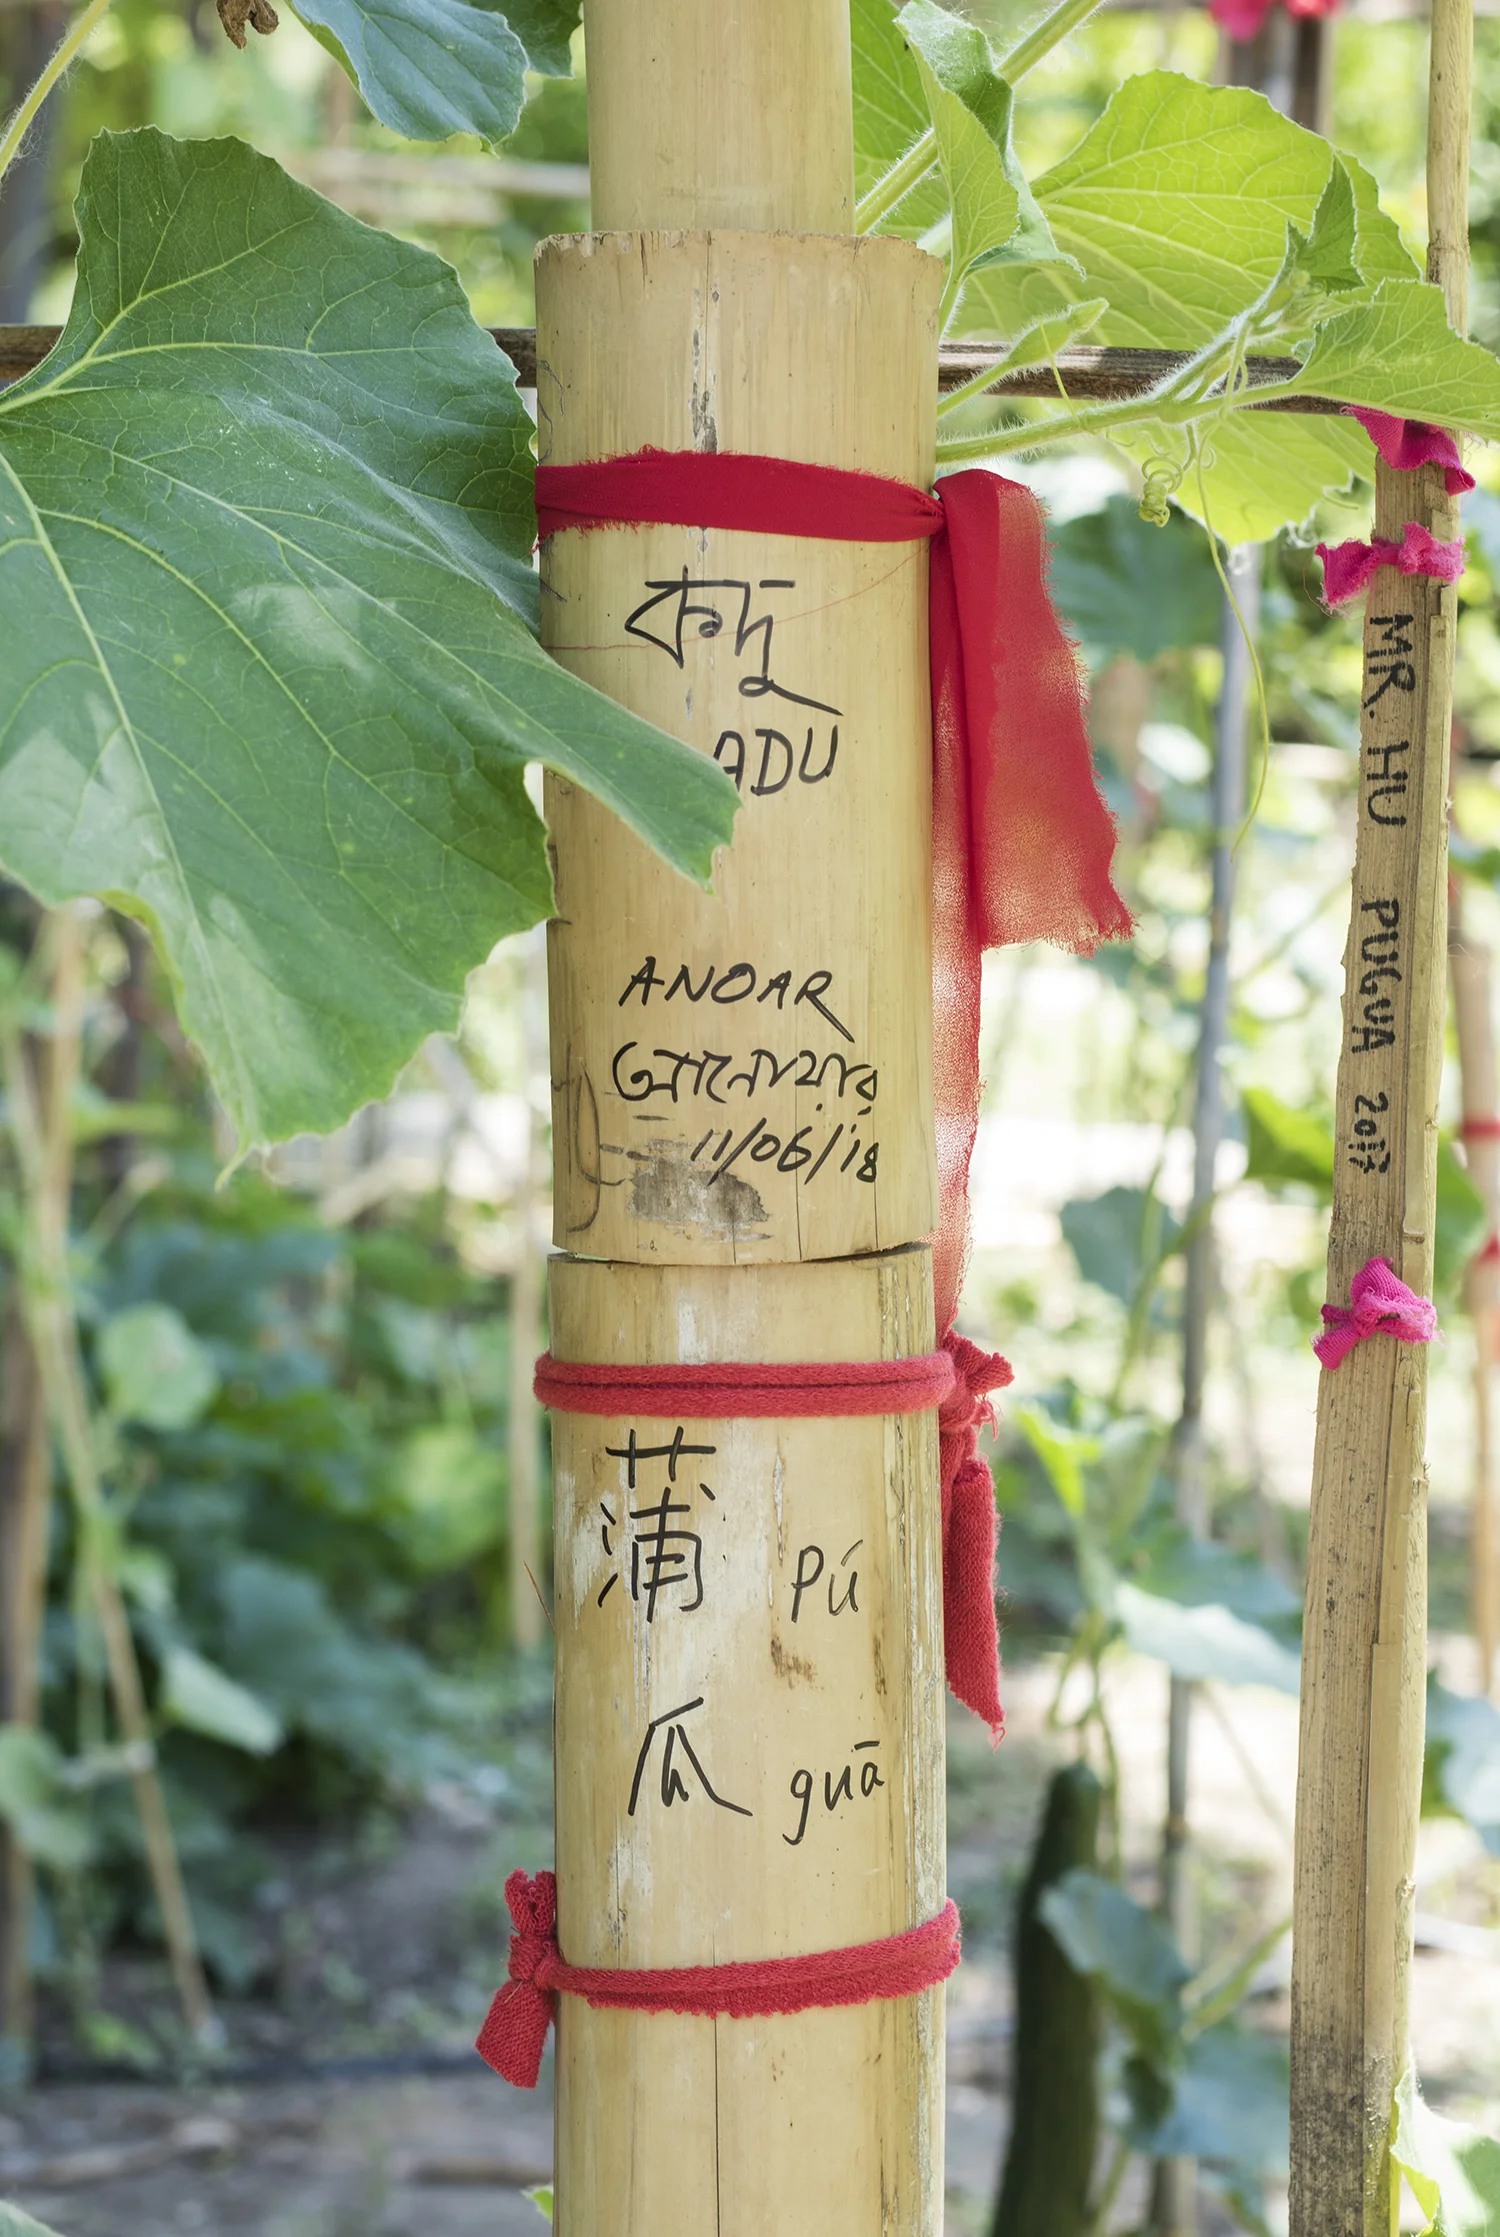 কদু
ADU
ANOAR
আনোয়ার
11/06/18
蒲 pú
瓜 guā
MR. HU PUGUA 2017